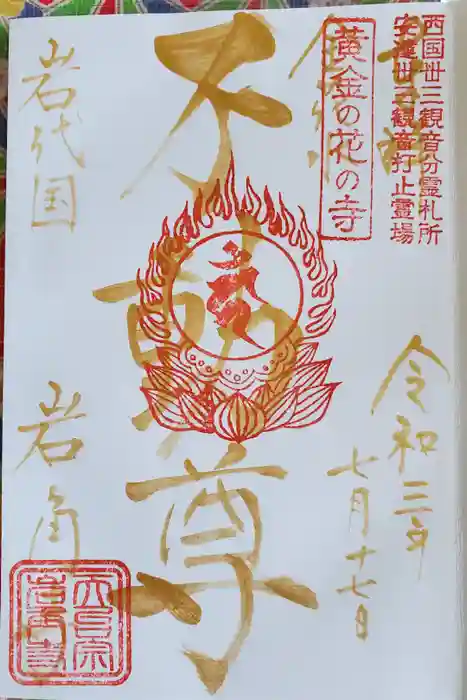 西国丗三観音分霊札所
安達丗三観音打止霊場
黄金の花の寺
令和三年
七月十七日
不動尊
岩代国
岩角
天台宗
岩角寺